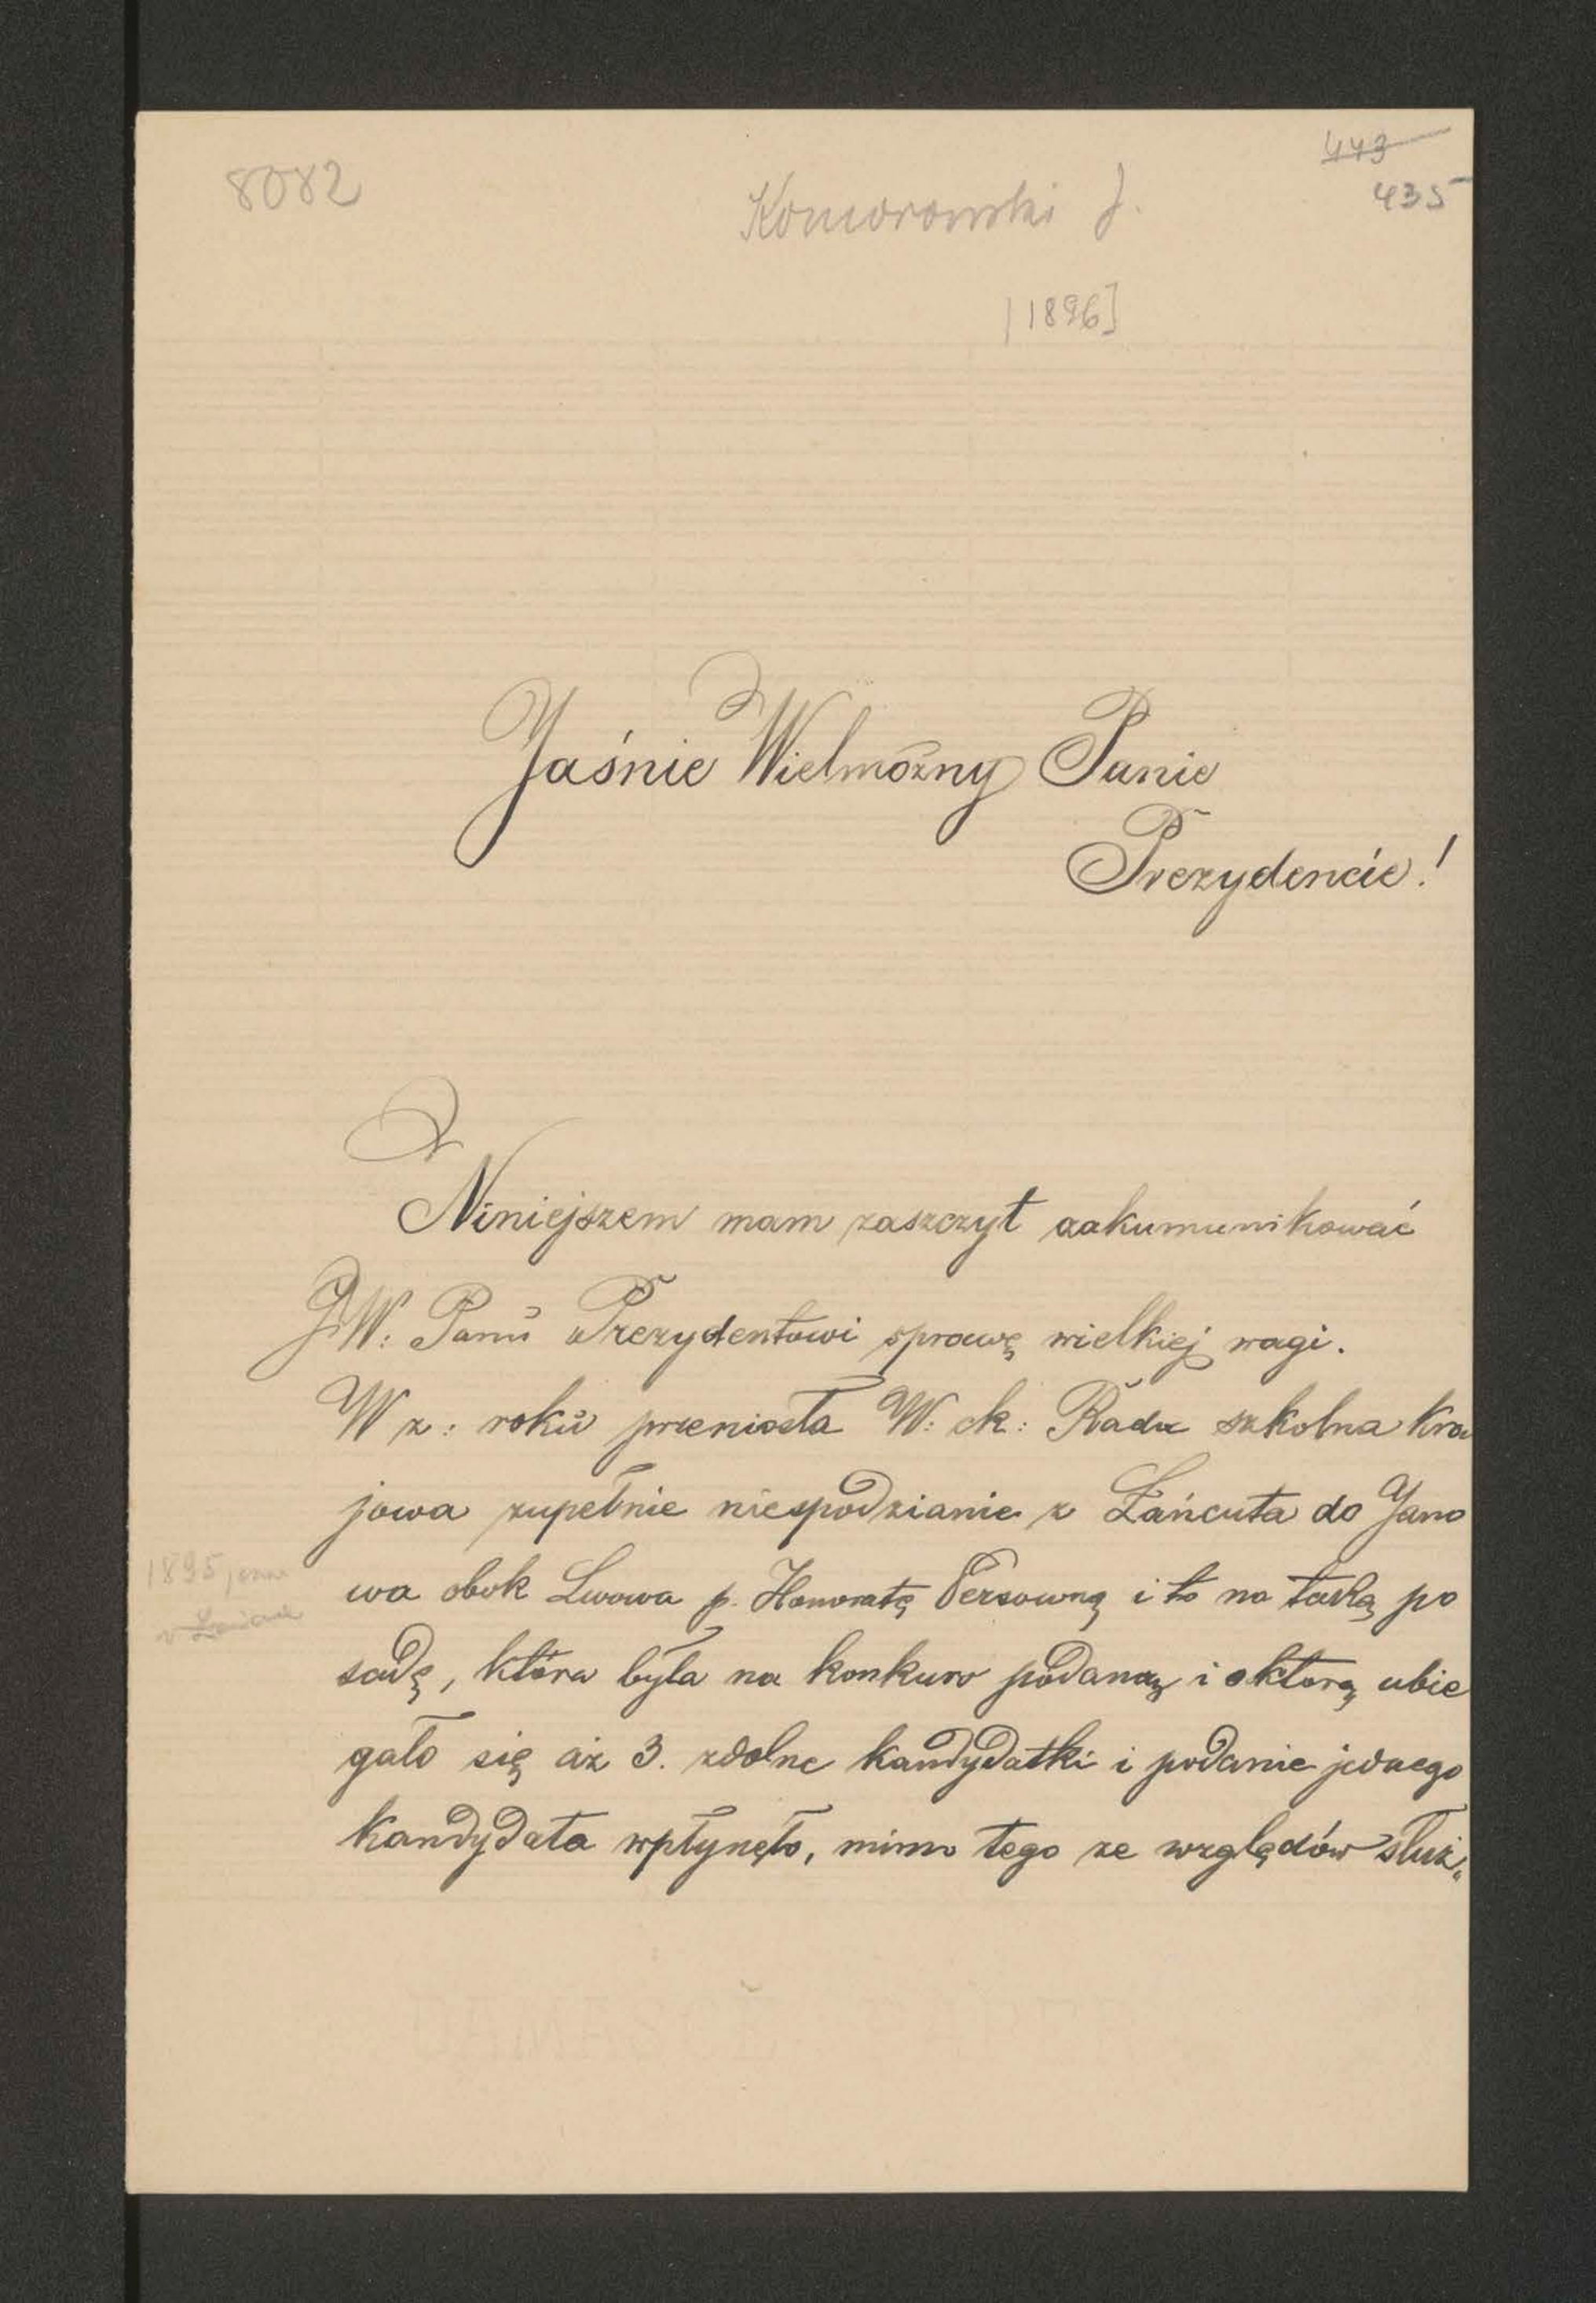 8082
443
435
Komorowski J.
[1896]
Jaśnie Wielmożny Panie
Prezydencie!
Niniejszem mam zaszczyt zakumunikować
JW: Panu Prezydentowi sprawę wielkiej wagi.
W z: roku przeniosła W: ck: Rada szkolna kra
jowa zupełnie niespodzianie z Łańcuta do Jano
wa obok Lwowa p. Honoratę Persowną i to na taką po
sadę, która była na konkurs podaną i o którą ubie
gało się aż 3. zdolne kandydatki i podanie jednego
kandydata wpłynęło, mimo tego ze względów służ„
1895
w